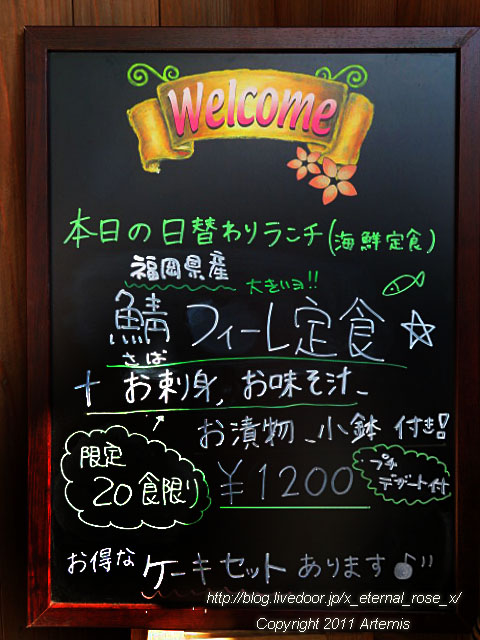 Welcome
本日の日替わりランチ(海鮮定食)
福岡県産
大きいヨ!!
鯖 フィーレ定食☆
さば
+ お刺身、お味そ汁、
お漬物、小鉢 付き!
限定
20食限り
¥1200
プチ
デザート付
お得な ケーキセット あります♪"
http://blog.livedoor.jp/x_eternal_rose_x/
Copyright 2011 Artemis